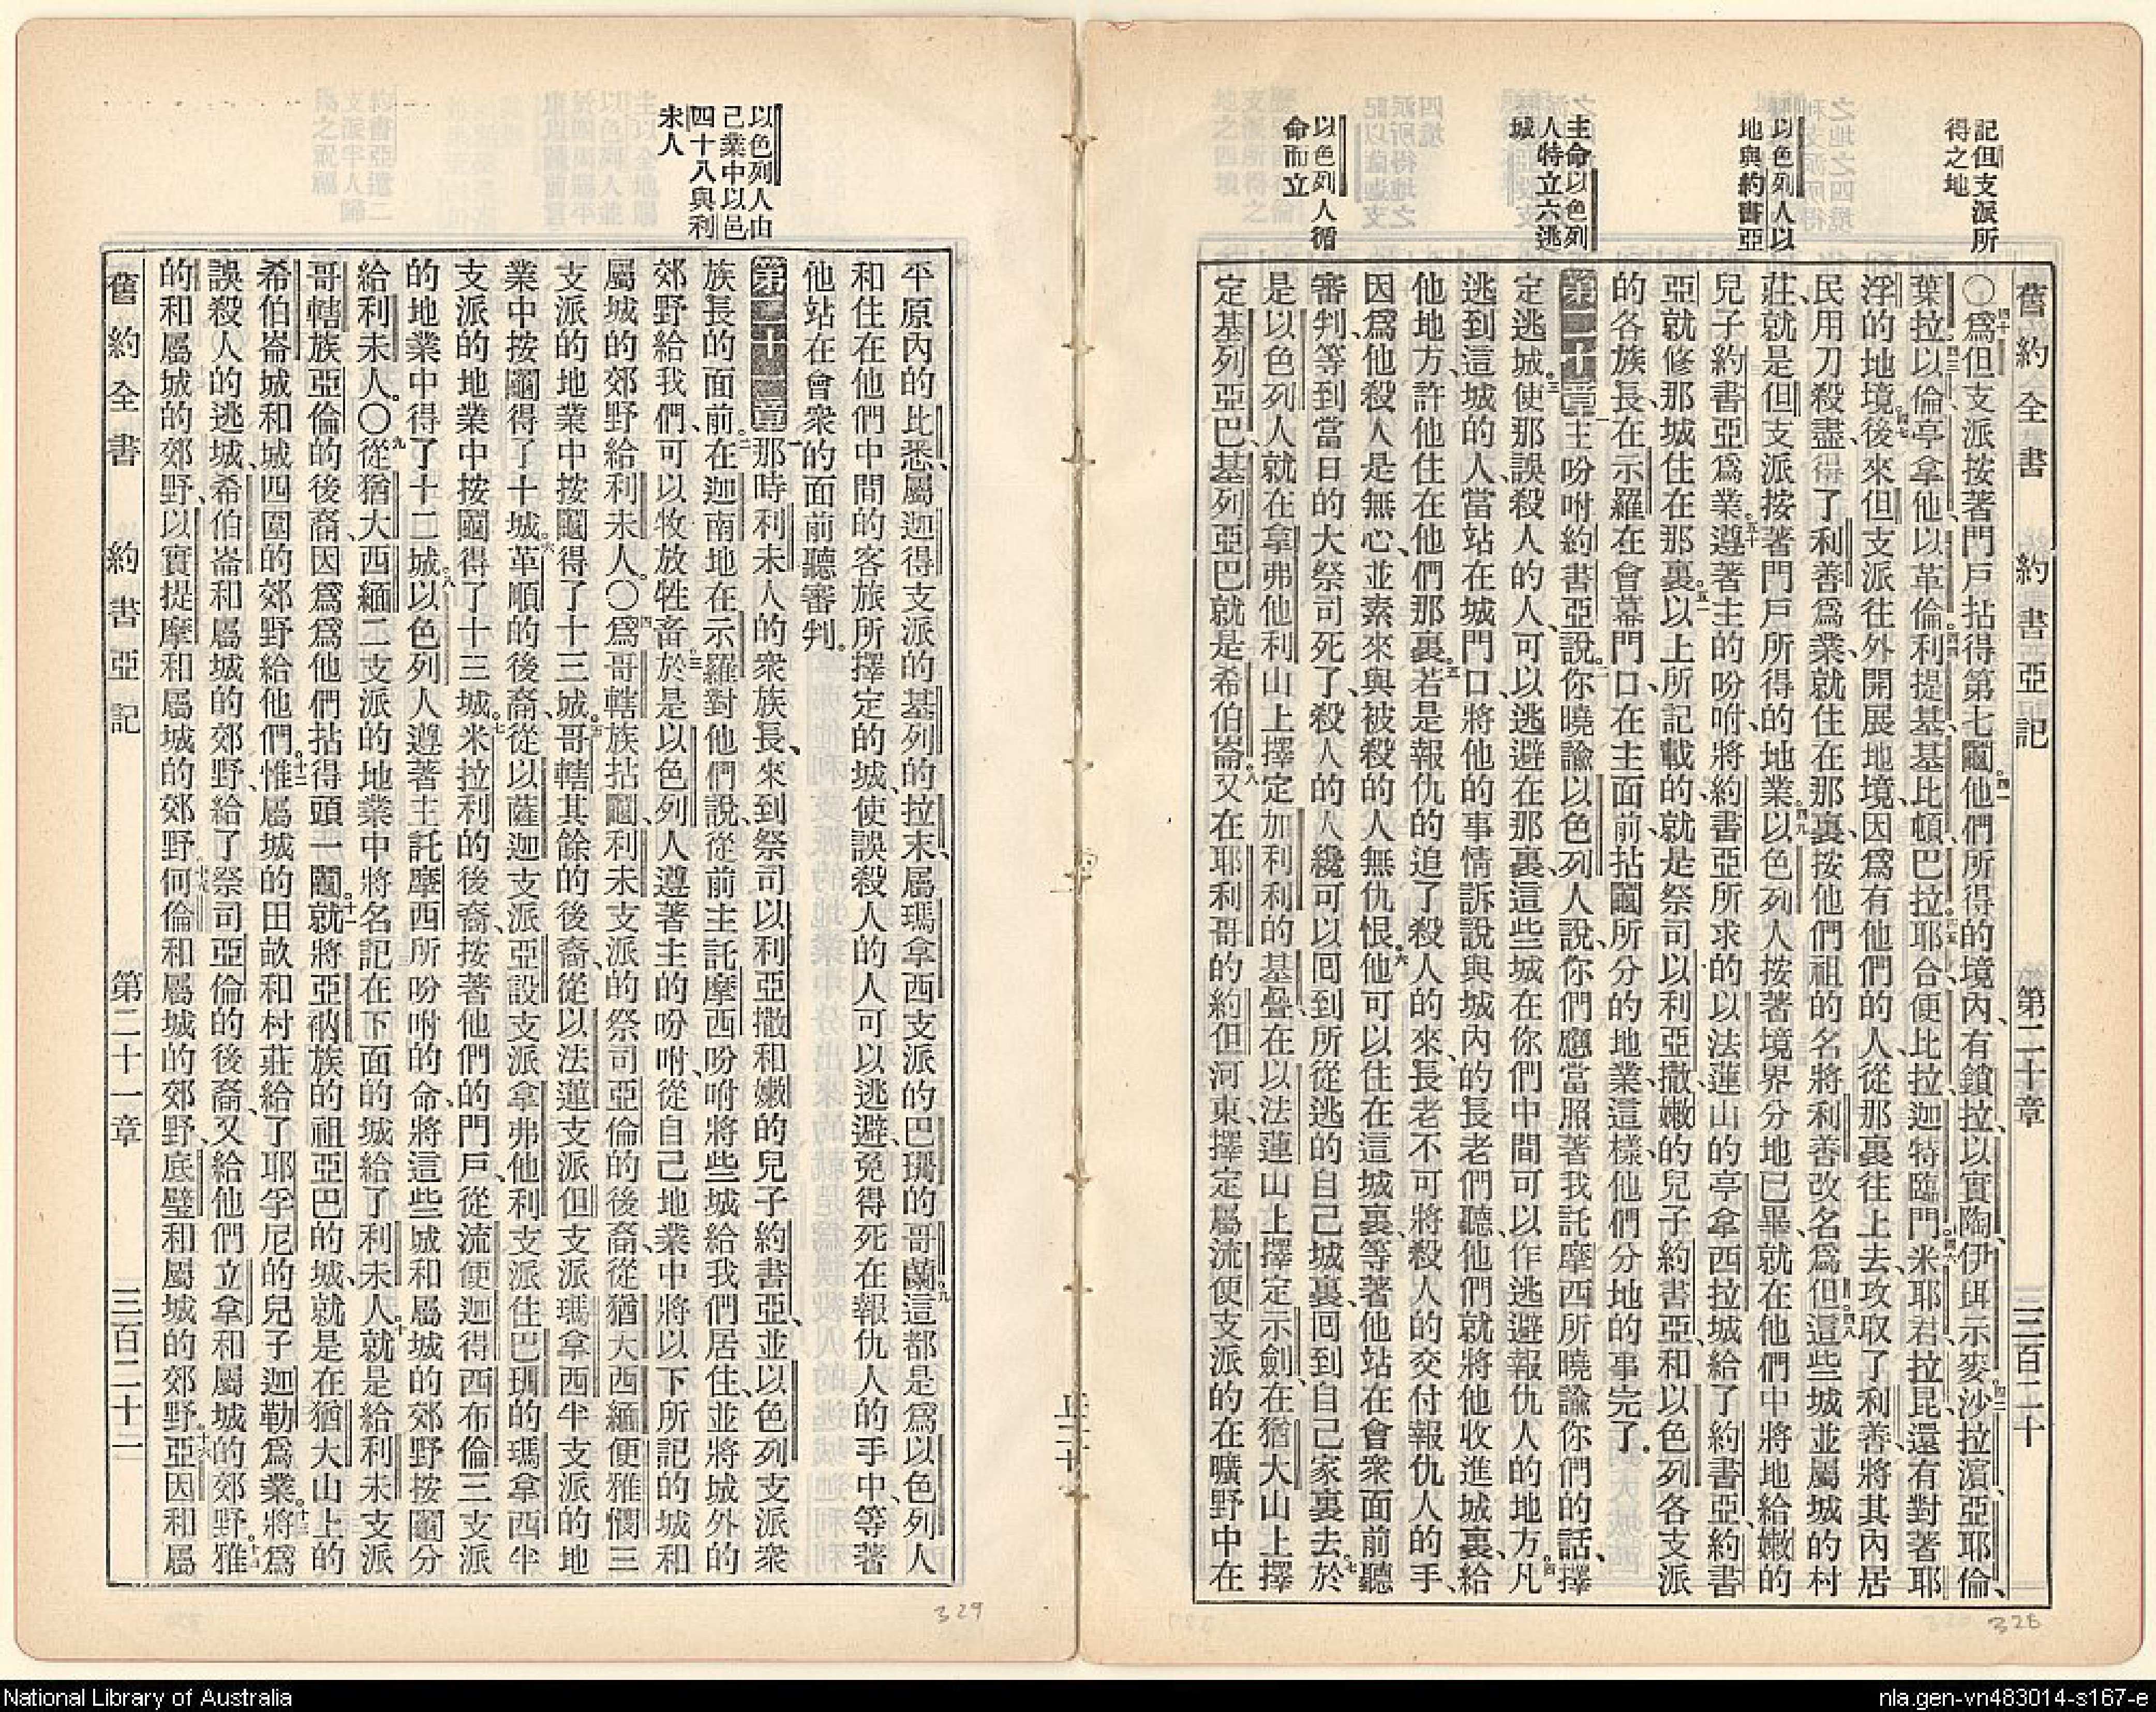 記但支派所
得之地
以色列人以
地與約書亞
主命以色列
人特立六逃
城
以色列人循
命而立
舊約全書 約書亞記 第二十章 三百二十
○四十爲但支派按著門戶拈得第七鬮。四一他們所得的境內、有鎖拉、以實陶、伊珥示麥、四二沙拉濱、亞耶倫、
葉拉、四三以倫、亭拿他、以革倫、四四利提基、基比頓、巴拉、四五耶合、便比拉、迦特臨門、四六米耶君、拉昆、還有對著耶
浮的地境。四七後來但支派往外開展地境、因爲有他們的人、從那裏往上去、攻取了利善、將其內居
民用刀殺盡、得了利善爲業、就住在那裏、按他們祖的名將利善改名爲但。四八這些城並屬城的村
莊、就是但支派按著門戶所得的地業。四九以色列人按著境界分地已畢、就在他們中將地給嫩的
兒子約書亞爲業。五十遵著主的吩咐、將約書亞所求的以法蓮山的亭拿西拉城給了約書亞、約書
亞就修那城、住在那裏。五一以上所記載的、就是祭司以利亞撒、嫩的兒子約書亞、和以色列各支派
的各族長、在示羅在會幕門口、在主面前、拈鬮所分的地業、這樣他們分地的事完了。
第二十章一主吩咐約書亞說、二你曉諭以色列人說、你們應當照著我託摩西所曉諭你們的話、擇
定逃城、三使那誤殺人的人、可以逃避在那裏、這些城在你們中間可以作逃避報仇人的地方。四凡
逃到這城的人、當站在城門口、將他的事情訴說與城內的長老們聽、他們就將他收進城裏、給
他地方、許他住在他們那裏。五若是報仇的追了殺人的來、長老不可將殺人的交付報仇人的手、
因爲他殺人是無心、並素來與被殺的人無仇恨。六他可以住在這城裏、等著他站在會衆面前聽
審判、等到當日的大祭司死了、殺人的人纔可以囘到所從逃的自己城裏、囘到自己家裏去。七於
是以色列人就在拿弗他利山上擇定加利利的基疊、在以法蓮山上擇定示劍、在猶大山上擇
定基列亞巴、基列亞巴就是希伯崙。八又在耶利哥的約但河東、擇定屬流便支派的在曠野中在
以色列人由
己業中以邑
四十八與利
未人
平原內的比悉、屬迦得支派的基列的拉末、屬瑪拿西支派的巴珊的哥蘭。九這都是爲以色列人
和住在他們中間的客旅所擇定的城、使誤殺人的人可以逃避、免得死在報仇人的手中、等著
他站在會衆的面前聽審判。
第二十一章一那時利未人的衆族長、來到祭司以利亞撒和嫩的兒子約書亞、並以色列支派衆
族長的面前。二在迦南地在示羅對他們說、從前主託摩西吩咐將些城給我們居住、並將城外的
郊野給我們、可以牧放牲畜。三於是以色列人遵著主的吩咐、從自己地業中將以下所記的城和
屬城的郊野給利未人。○四爲哥轄族拈鬮、利未支派的祭司亞倫的後裔、從猶大西緬便雅憫三
支派的地業中按鬮得了十三城。五哥轄其餘的後裔、從以法蓮支派但支派瑪拿西半支派的地
業中按鬮得了十城。六革順的後裔、從以薩迦支派亞設支派拿弗他利支派住巴珊的瑪拿西半
支派的地業中按鬮得了十三城。七米拉利的後裔、按著他們的門戶、從流便迦得西布倫三支派
的地業中得了十二城。八以色列人遵著主託摩西所吩咐的命、將這些城和屬城的郊野按鬮分
給利未人。○九從猶大西緬二支派的地業中將名記在下面的城給了利未人。十就是給利未支派
哥轄族亞倫的後裔、因爲爲他們拈得頭一鬮。十一就將亞衲族的祖亞巴的城、就是在猶大山上的
希伯崙城和城四圍的郊野給他們。十二惟屬城的田畝和村莊給了耶孚尼的兒子迦勒爲業。十三將爲
誤殺人的逃城、希伯崙和屬城的郊野、給了祭司亞倫的後裔、又給他們立拿和屬城的郊野、十四雅
的和屬城的郊野、以實提摩和屬城的郊野、十五何倫和屬城的郊野、底璧和屬城的郊野、十六亞因和屬
舊約全書 約書亞記 第二十一章 三百二十一
328
329
National Library of Australia
nla.gen-vn483014-s167-e